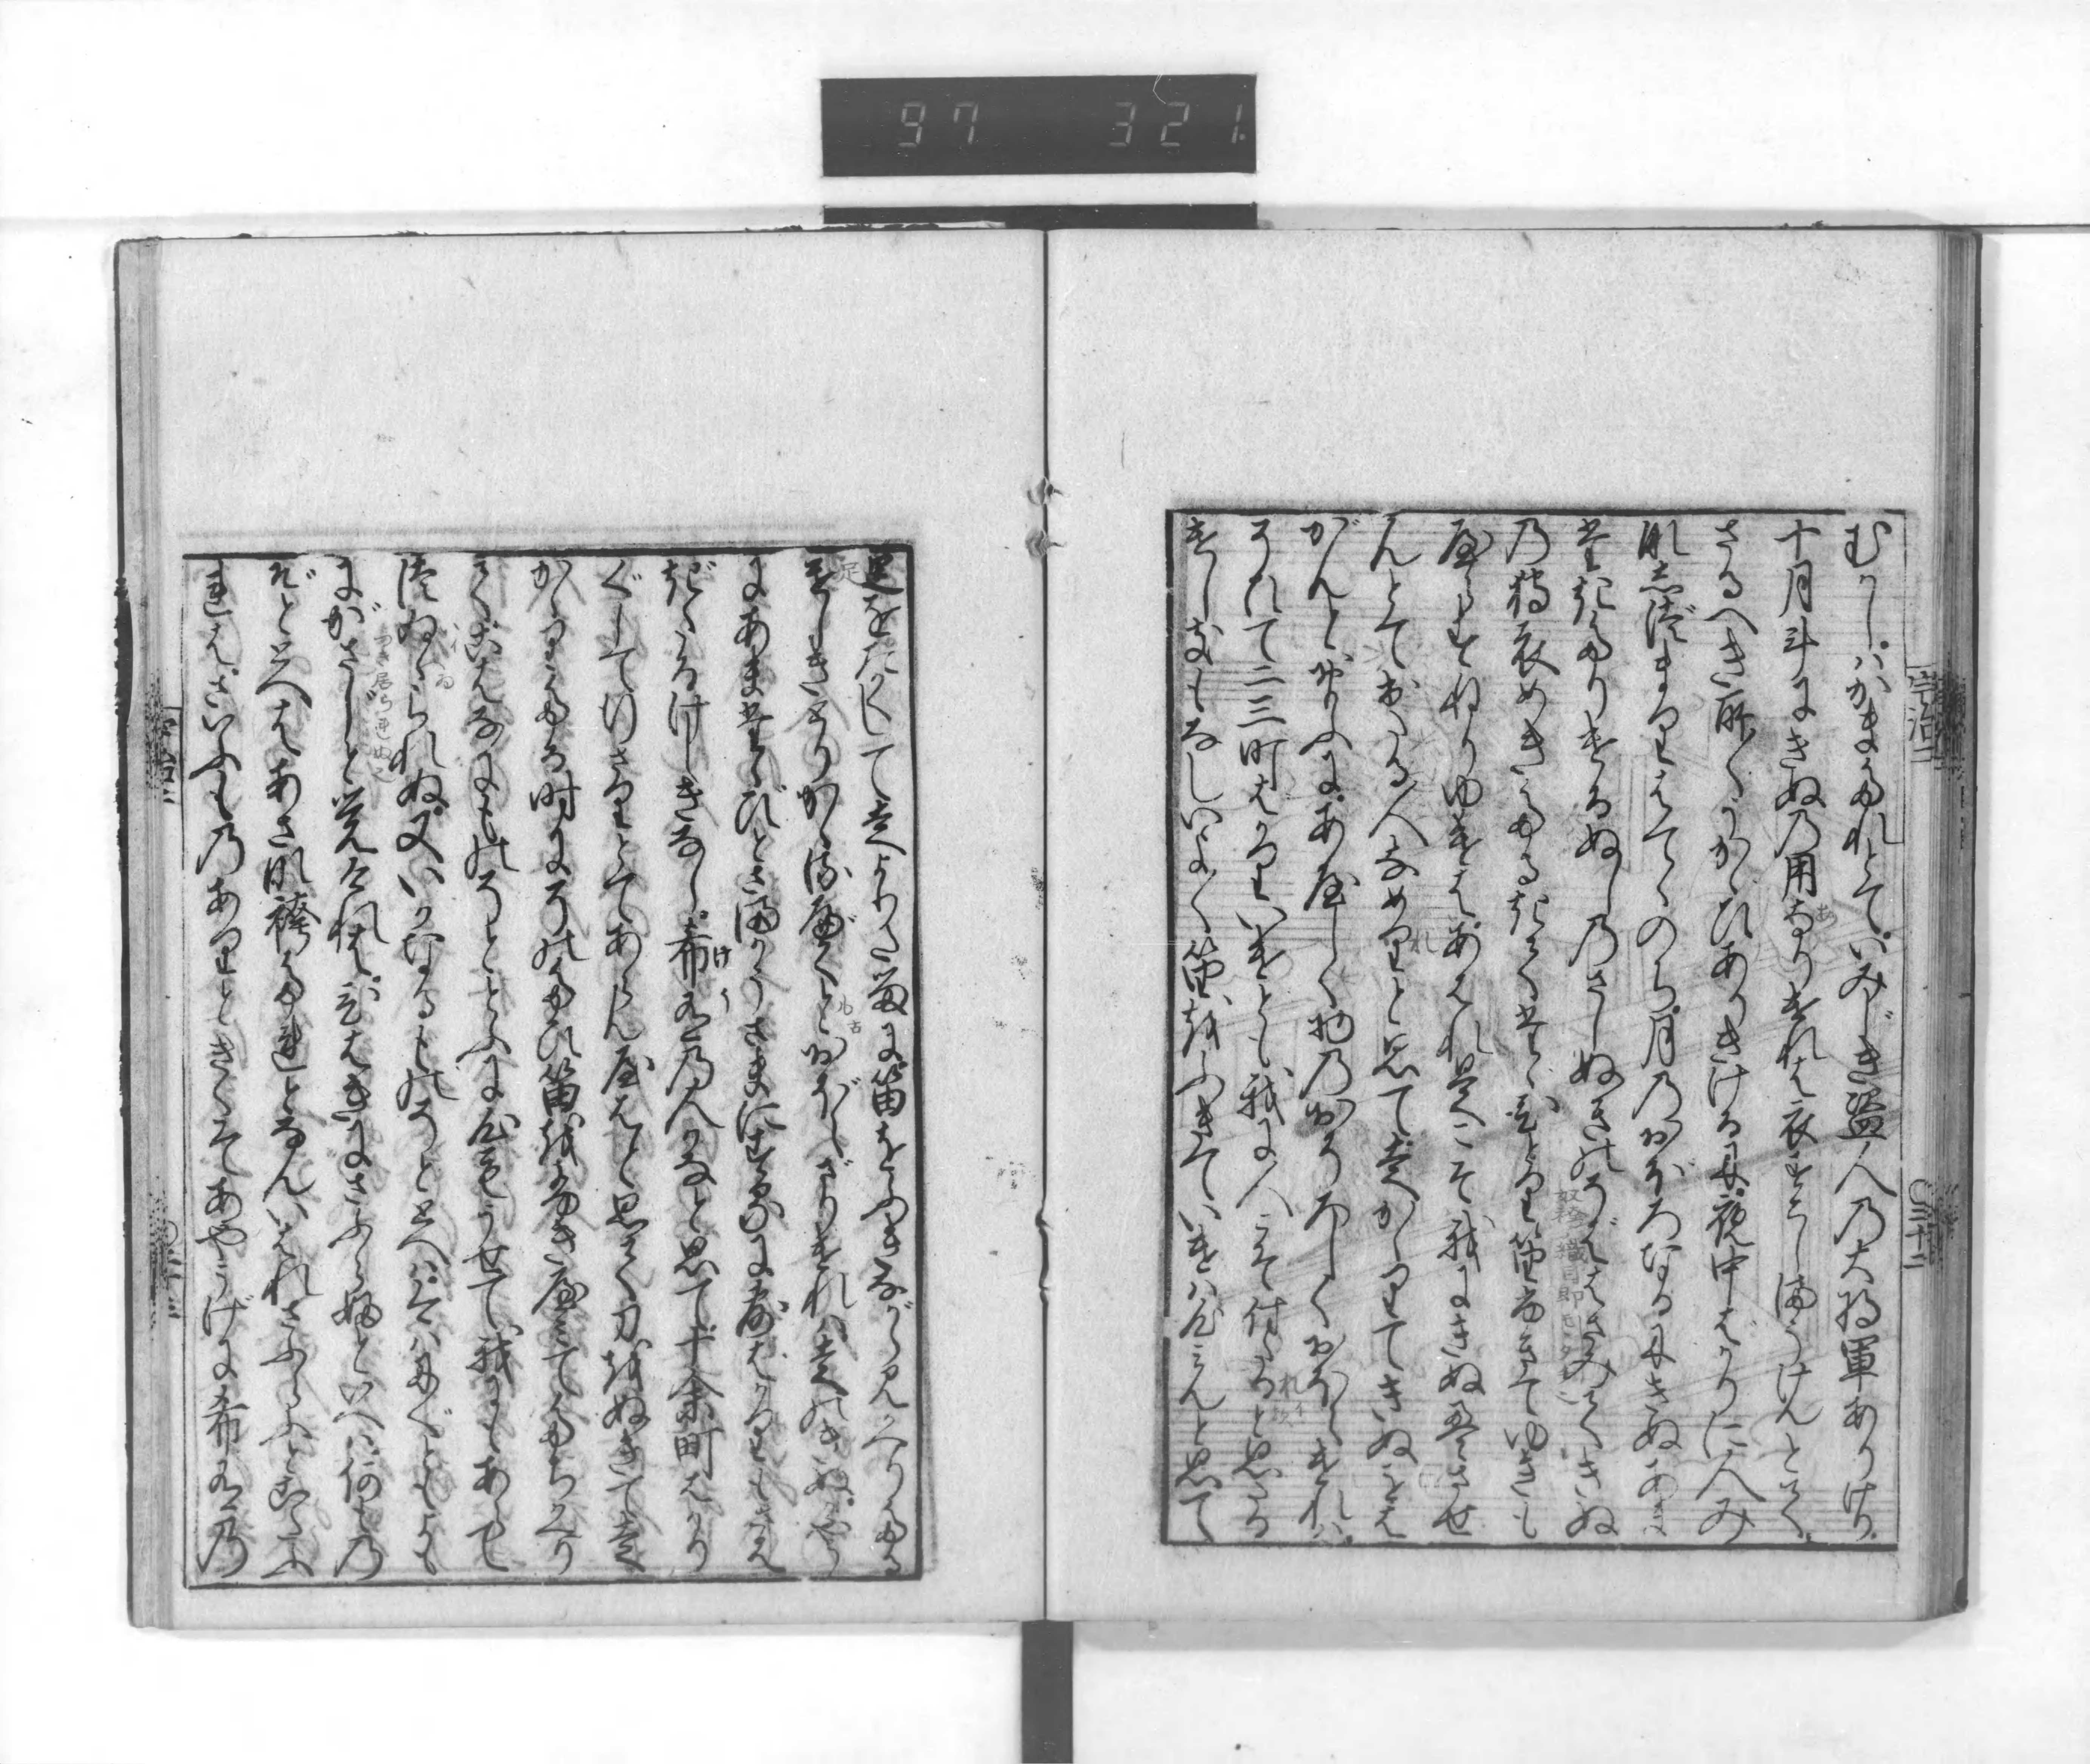 97 321.
宇治二
〇三十二
むかしはかまたれとていみじき盗人の大将軍ありけり
十月斗にきぬの用なりければ衣すこしまうけんとて
さるへき所〳〵うかゝひありきけるに夜中ばかりに人み
な志づまりはてゝのち月のおぼろなるにきぬあま
たきたりけるぬしのさしぬきのそばはさみてきぬ
の狩衣めきたるきてたゝひとり笛ふきてゆきも
やらずねりゆけばあはれ是こそ我にきぬえさせ
んとて出たる人なめりと思て走かゝりてきぬをは
がんとおもふにあやしく物のおそろしくおぼえければ
そひて二三町ばかりいけども我に人こそ付たると思たる
けしきもなしいよ〳〵笛をふきていけば心みんと思て
足をたかくして走よりたるに笛をふきながら見かへりたる
けしきとりかゝるべくもおぼえざりければ走のきぬかやう
にあまたたびとさまかうさまにするに露ばかりもさは
ぎたるけしきなし希有の人かなと思て十余町ばかり
ぐして行さりとてあらんやはと思て刀をぬきて走
かゝりたる時にそのたび笛をふきやみてたちかへり
てこはなにものぞととふに心もうせて我にもあらで
ついゐられぬ又いかなるものぞととへば今はにぐともよも
にがさじと覚ければひはぎにさふらふといへば何もの
ぞととへばあさな袴たれとなんいはれさふらふとこたふ
ればさいふものありときくぞあやうげに希有の